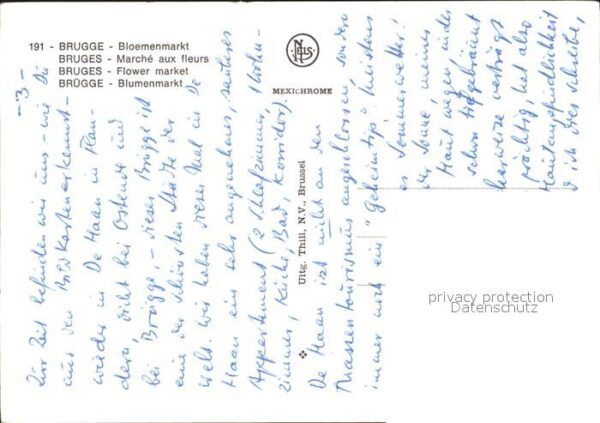 191 - BRUGGE - Bloemenmarkt
BRUGES - Marché aux fleurs
BRUGES - Flower market
BRÜGGE - Blumenmarkt
NELS
MEXICHROME
Uitg. Thill, N.V., Brussel
privacy protection
Datenschutz
- 3 -
Zur Zeit befinden wir uns - wie Du
aus den Bildkarten erkennst -
wieder in De Haan in Flan-
dern, dicht bei Ostende und
bei Brügge, - dieses Brügge ist
eine der schönsten Städte der
Welt. Wir haben dieses Mal in De
Haan ein sehr angenehmes, sauberes
Appartement (2 Schlafzimmer, Wohn-
zimmer, Küche, Bad, Korridor).
De Haan ist nicht an den
Massentourismus angeschlossen, sondern
immer noch ein "Geheimtip". Meistens
es Sommerwetter!
der Sonne, meine
Haut wegen
schon tiefgebräunt
verträgt
prächtig, hat also
Hautempfindlichkeit
ich dies schreibe,